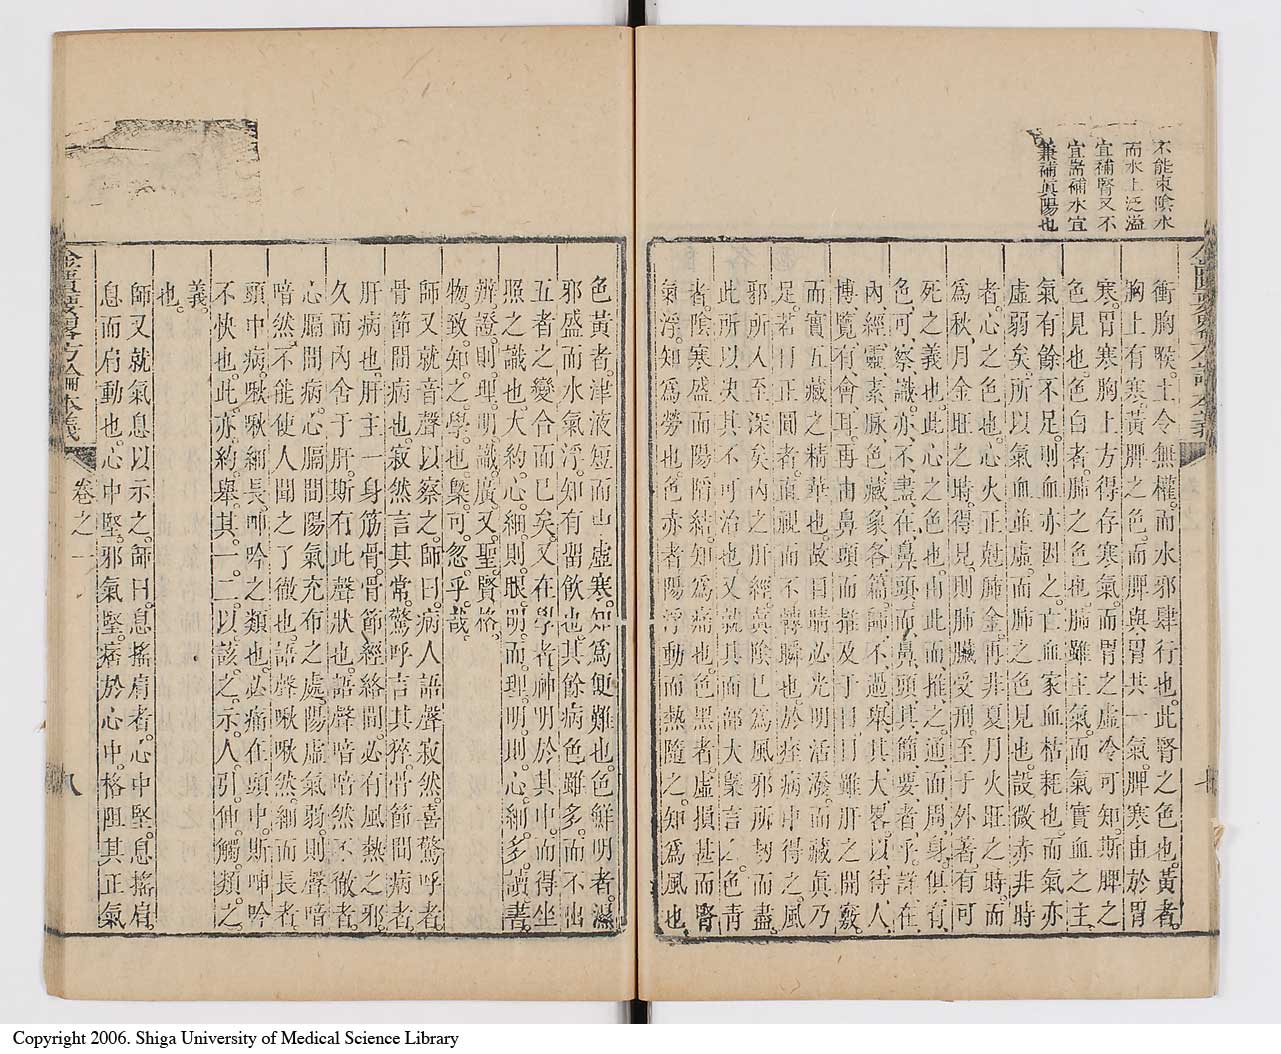 不能束陰水
而水上泛溢
宜補腎又不
宜耑補水宜
兼補眞陽也
衝胸喉土令無權而水邪肆行也此腎之色也黃者
胸上有寒黃脾之色而脾與胃共一氣脾寒由於胃
寒胃寒胸上方得存寒氣而胃之虛冷可知斯脾之
色見也色白者肺之色也肺雖主氣而氣實血之主
氣有餘不足則血亦因之亡血家血枯耗也而氣亦
虛弱矣所以氣血並虛而肺之色見也設微赤非時
者心之色也心火正尅肺金再非夏月火旺之時而
爲秋月金旺之時得見則肺臟受刑至于外著有可
死之義也此心之色也由此而推之通面周身俱有
色可察識亦不盡在鼻頭而鼻頭其簡要者乎詳在
內經靈素脉色藏象各篇論不過舉其大畧以待人
博覽有會耳再由鼻頭而推及于目目雖肝之開竅
而實五藏之精華也故目睛必光明活潑而藏眞乃
足若目正圓者直視而不轉瞬也於痓病中得之風
邪所入至深矣內之肝經眞陰已爲風邪所刼而盡
此所以决其不可治也又就其面部大槩言之色靑
者陰寒盛而陽㿉結知爲痛也色黑者虛損甚而腎
氣浮知爲勞也色赤者陽浮動而熱隨之知爲風也
色黃者津液短而山虛寒知爲便難也色鮮明者濕
邪盛而水氣浮知有畱飲也其餘病色雖多而不出
五者之變合而已矣又在學者神明於其中而得坐
照之識也大約心細則眼明而理明則心細多讀書
辨證則理明識廣又聖賢格
物致知之學也槩可忽乎哉
師又就音聲以察之師曰病人語聲寂然喜驚呼者
骨節間病也寂然言其常驚呼言其猝骨節間病者
肝病也肝主一身筋骨骨節經絡間必有風熱之邪
久而內舍于肝斯有此聲狀也語聲喑喑然不徹者
心膈間病心膈間陽氣充布之處陽虛氣弱則聲喑
喑然不能使人聞之了徹也語聲啾啾然細而長者
頭中病啾啾細長呻吟之類也必痛在頭中斯呻吟
不快也此亦約舉其一二以該之示人引伸觸類之
義
也
師又就氣息以示之師曰息搖肩者心中堅息搖肩
息而肩動也心中堅邪氣堅痞於心中格阻其正氣
金匱要畧方論本義
卷之一
八